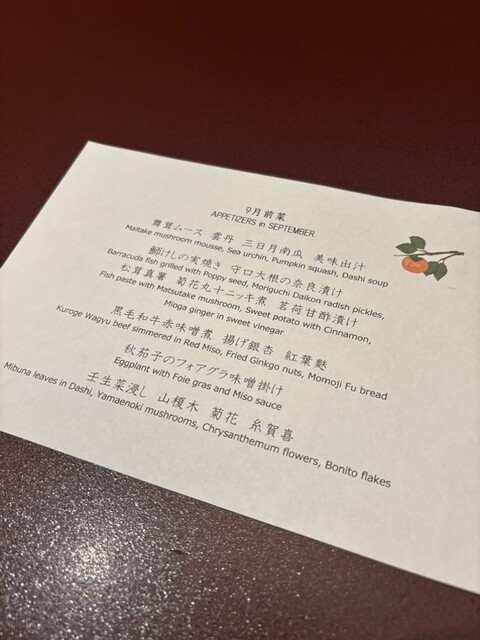 9月前菜
APPETIZERS in SEPTEMBER
舞茸ムース 雲丹 三日月南瓜 美味出汁
Maitake mushroom mousse, Sea urchin, Pumpkin squash, Dashi soup
魳けしの実焼き 守口大根の奈良漬け
Barracuda fish grilled with Poppy seed, Moriguchi Daikon radish pickles,
松茸真薯 菊花丸十ニッキ煮 茗荷甘酢漬け
Fish paste with Matsutake mushroom, Sweet potato with Cinnamon,
Mioga ginger in sweet vinegar
黒毛和牛赤味噌煮 揚げ銀杏 紅葉麩
Kuroge Wagyu beef simmered in Red Miso, Fried Ginkgo nuts, Momoji Fu bread
秋茄子のフォアグラ味噌掛け
Eggplant with Foie gras and Miso sauce
壬生菜浸し 山榎木 菊花 糸賀喜
Mibuna leaves in Dashi, Yamaenoki mushrooms, Chrysanthemum flowers, Bonito flakes